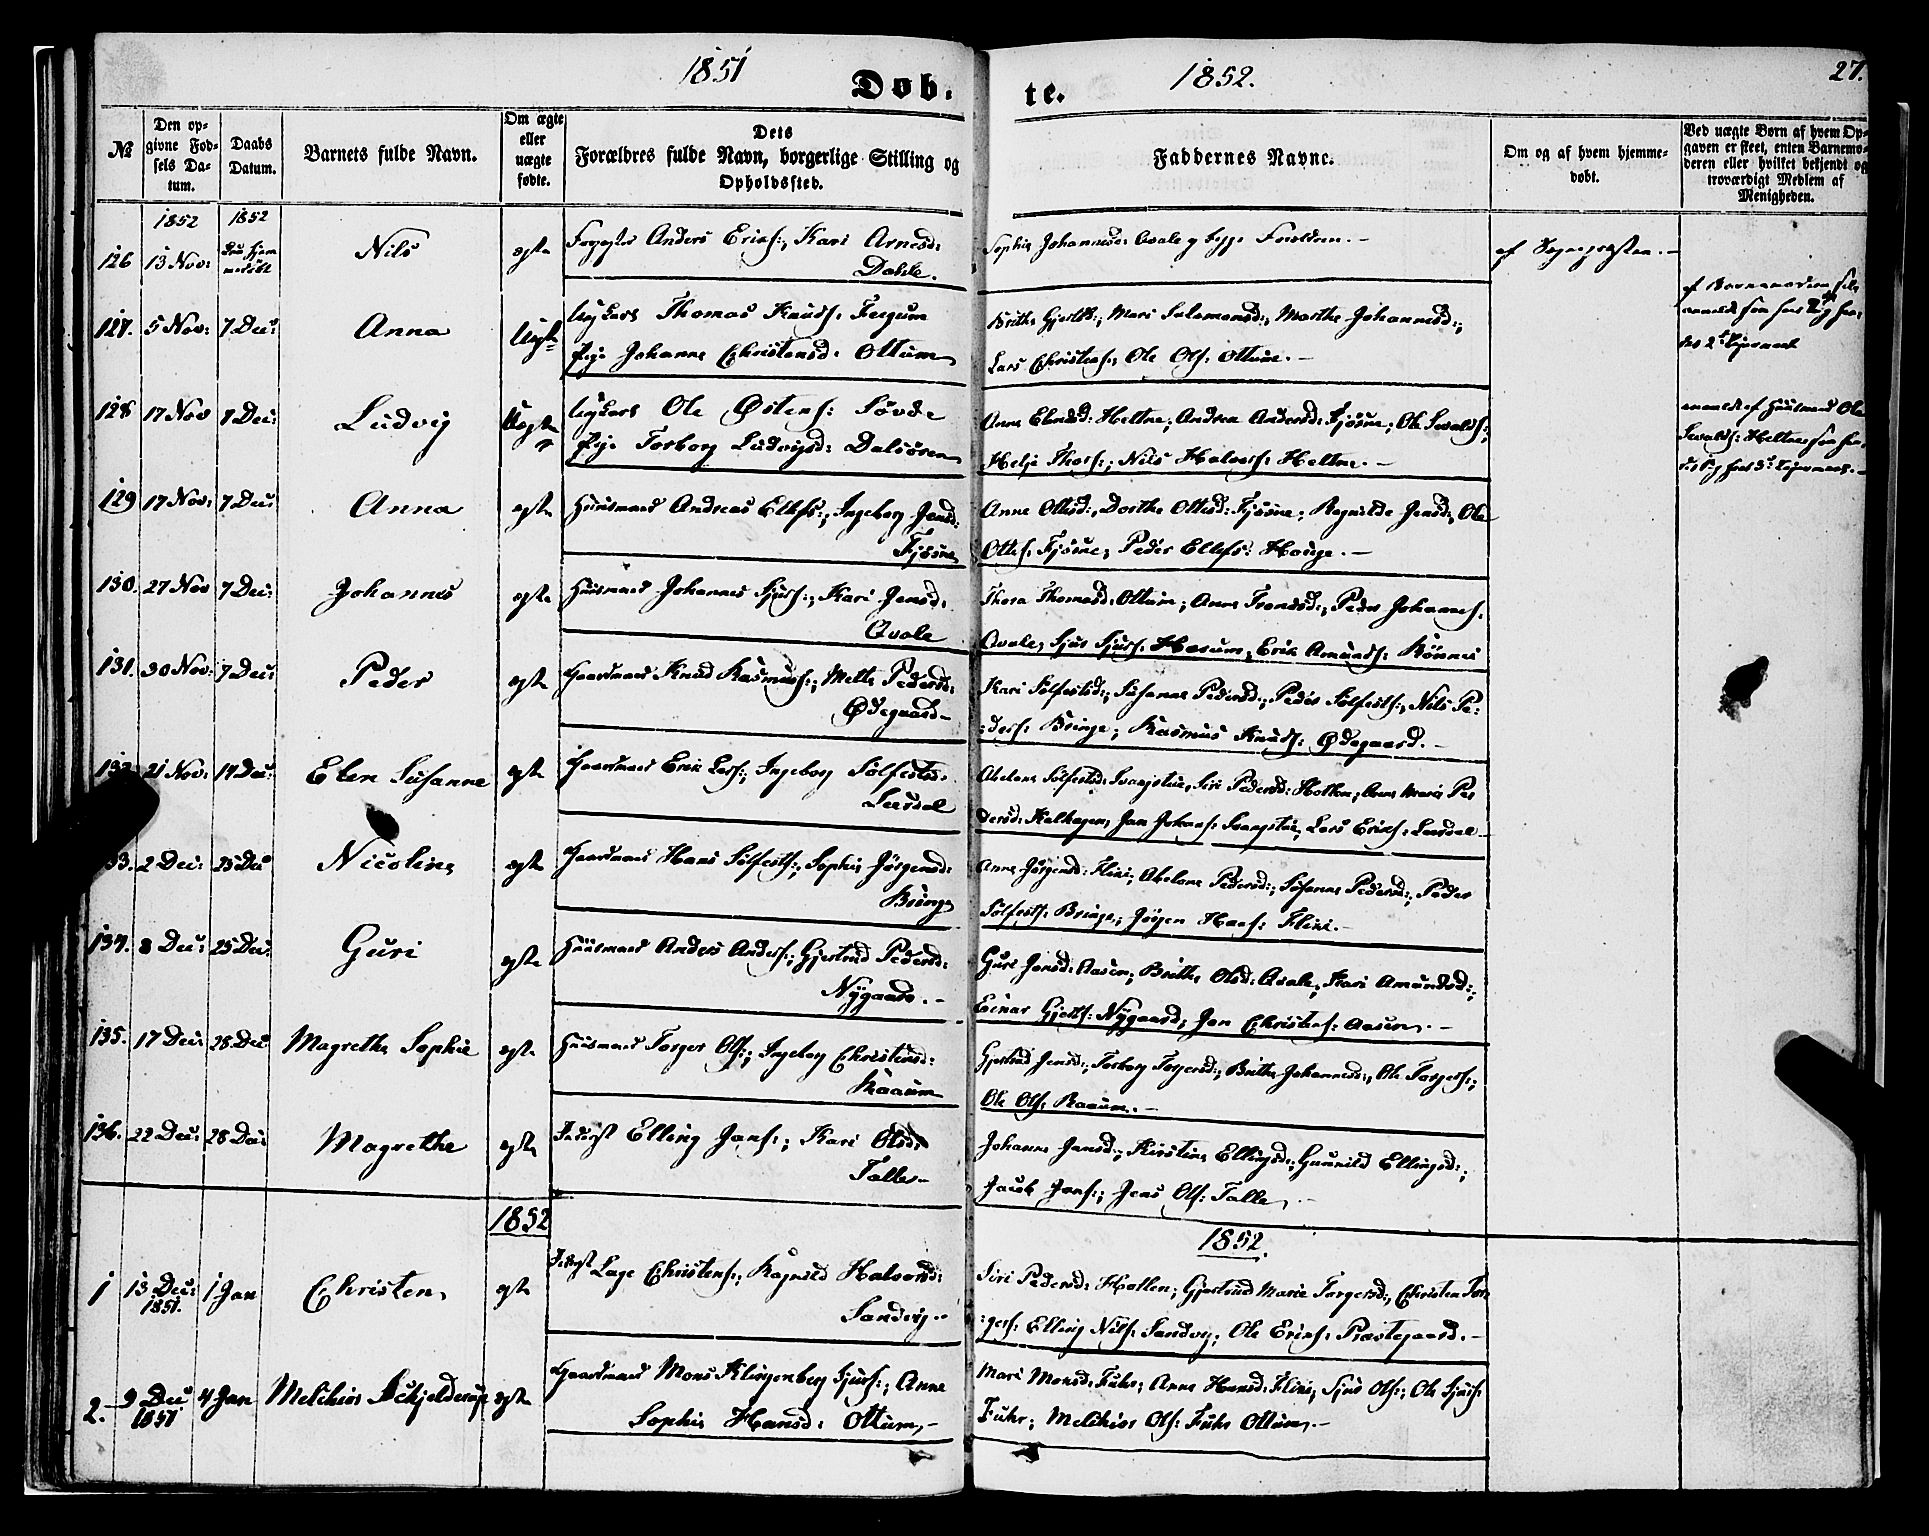 1851
1852.
27.
Døb-
te.
No
Den op-
givne Fød-
sels Da-
tum.
Daabs
Datum.
Barnets fulde Navn.
Om ægte
eller
uægte
fødte.
Dets
Forældres fulde Navn, borgerlige Stilling og
Opholdssted.
Faddernes Navne.
Om og af hvem hjemme-
døbt.
Ved uægte Børn af hvem Op-
gaven er skeet, enten Barnemo-
deren eller hvilket bekjendt og
troværdigt Medlem af
Menigheden.
1852 1852
126 13 Nov: Nils ægte Anders Erics:, Kari Arnesd:
Dahle.
Sophie Johannesd: Qvale og begge Forældrene.-
af Sognepræsten.-
127. 5 Nov: 7 Dec: Anna Uægte Ungkarl Thomas Knuds: Fergum
Pige Johanne Christensd: Ottum
Brithe Gjertsd:, Mari Salamonsd:, Marthe Johannesd:,
Lars Christens:, Ole Ols: Ottum.-
128 17 Nov 7 Dec: Ludvig Uægte Ungkarl Ole Østens: Søvde
Pige Torborg Ludvigsd: Dalsøren
Anne Heltne; Andrea Andersd: Fjøsne; Ole Sevalds:,
Helje Thors:, Nils Halvors: Heltne.-
anmeldt af Huusmand Ole
Sevalds: Heltne
129 17 Nov: 7 Dec: Anna ægte Huusmand Andreas Ellefs:, Ingeborg Jensd:
Fjøsne
Anne Ottesd:, Dorthe Ottesd: Fjøsne; Ragnilde Jensd:, Ole
Ottes: Fjøsne; Peder Ellefs: Hauge.-
130. 27 Nov 7 Dec: Johannes ægte Huusmand Johannes Sjurs:, Kari Jensd:
Qvale
Thora Thomasd: Ottum; Anna Trondsd:, Peder Johannes:
Qvale, Sjur Sjurs: Hasum, Erik Amunds: Rønnei
131. 30 Nov: 7 Dec: Peder ægte Gaardmand Knud Rasmus:; Mette Pedersd:
Ødegaard-
Kari Solfestsd:, Susanne Pedersd:, Peder Solfests:, Nils Pe-
:ders: Bringe; Rasmus Knuds: Ødegaard.-
132. 21 Nov: 14 Dec: Elen Susanne ægte Gaardmand Erik Lars:, Ingeborg Solfestsd:
Lerdal
Abelone Solfestsd: Svangstue, Siri Pedersd: Hollen; Anne Maria Pe-
dersd: Kalhagen, Jan Johans: Svangstue, Lars Erics: Lerdal-
133. 2 Dec: 25 Dec Nicoline ægte Gaardmand Hans Solfests:, Sophie Jørgensd:
Bringe
Anne Jørgensd: Flini; Abelone Pedersd:, Susanne Pedersd:, Peder
Solfests: Bringe; Jørgen Hans: Flini.-
134. 8 Dec: 25 Dec: Guri ægte Huusmand Anders Anders:, Gjertrud Pedersd:
Nygaard.-
Guri Jansd: Aasen; Brithe Olsd: Qvale, Kari Amundsd:,
Einar Gjerts: Nygaard; Jan Christens: Aasen.-
135. 17 Dec: 28 Dec Magrethe Sophie ægte Huusmand Torger Ols:; Ingeborg Christensd:
Kaaum
Gjertrud Jensd:, Torborg Torgersd:, Brithe Johannesd:, Ole Torgers:,
Ole Ols: Raaum.-
136. 22 Dec: 28 Dec: Magrethe ægte Inderst Elling Jans:; Kari Olsd:
Talle-
Johanne Jansd:, Kirstine Ellingsd:, Gunnild Ellingsd:,
Jacob Jans:, Jens Ols: Talle.-
1852
1852.
1 13 Dec:
1851. 1 Jan Christen ægte Inderst Lage Christens:, Ragnild Halvorsd:
Sandvig.-
Siri Pedersd: Hollen; Gjertrud Marie Torgersd:, Christen Tor-
:gers: Elling Nils: Sandvig; Ole Erics: Præstegaard.-
2. 9 Dec
1851 4 Jan Melchior Schjelderup ægte Gaardmand Mons Klingenberg Sjurs:, Anne
Sophie Hansd: Ottum.-
Mari Monsd: Fuhr; Anne Hansd: Flini; Sjur Ols:, Ole Sjurs:
Fuhr; Melchior Ols: Fuhr Ottum.-